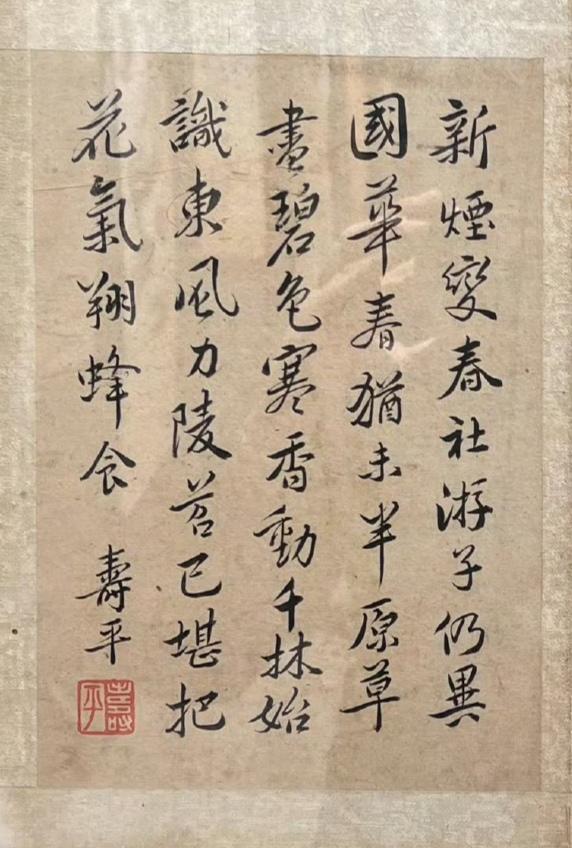 新煙變春社游子仍異
國華春猶未半原草
盡碧色寒香動千林始
識東風力陵苕已堪把
花氣翔蜂食 壽平
壽平